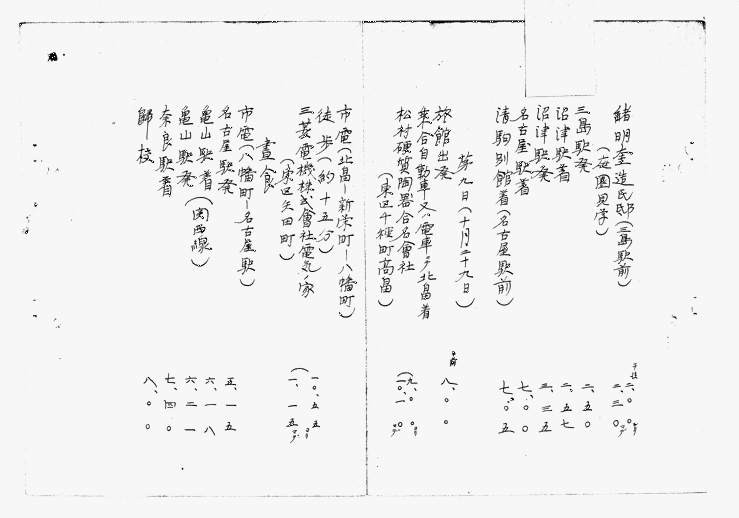 緒明圭造氏邸(三島駅前) 午後 二、〇〇ヨリ 二、三〇マデ
(庭園見学)
三島駅発 二、五〇
沼津駅着 二、五七
沼津駅発 三、三五
名古屋駅着 七、〇〇
清駒別館着(名古屋駅前) 七、〇五
第九日(十月二十九日)
旅館出発 午前 八、〇〇
乗合自動車又ハ電車ヲ北畠着
松村硬質陶器合名會社 (九、〇〇ヨリ 一〇、一〇マデ
(東区千種町高畠)
市電(北畠ー新栄町ー八幡町)
徒歩(約十五分)
三菱電機株式會社電気ノ家 (一〇、五五ヨリ 一、一五マデ
(東区矢田町)
晝食
市電(八幡町ー名古屋駅)
名古屋駅発 五、一五
亀山駅着 六、一八
亀山駅発(関西線) 六、二一
奈良駅着 七、四〇
歸校 八、〇〇